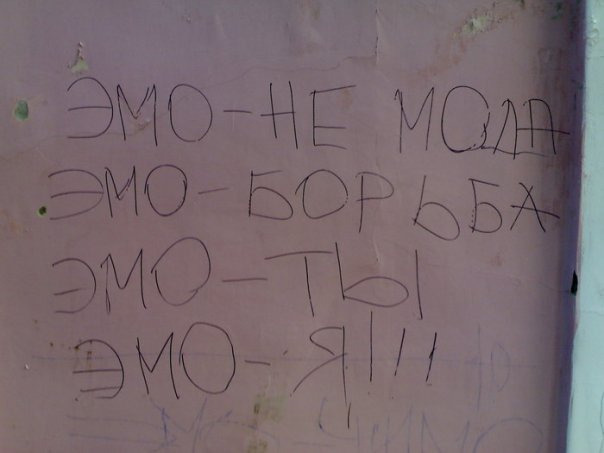 ЭМО-НЕ МОДА
ЭМО-БОРЬБА
ЭМО-ТЫ
ЭМО-Я!!!